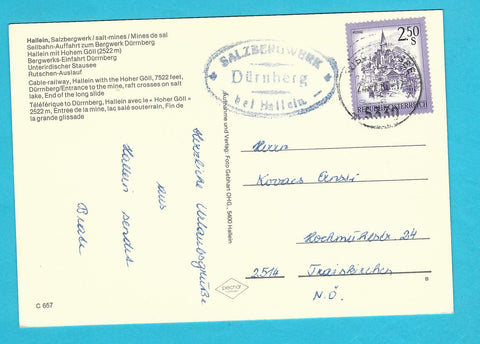 Hallein, Salzbergwerk / salt-mines / Mines de sal
Seilbahn-Auffahrt zum Bergwerk Dürrnberg
Hallein mit Hohem Göll (2522 m)
Bergwerks-Einfahrt Dürrnberg
Unterirdischer Stausee
Rutschen-Auslauf
Cable-railway, Hallein with the Hoher Göll, 7522 feet,
Dürrnberg/Entrance to the mine, raft crosses on salt
lake, End of the long slide
Téléférique to Dürrnberg, Hallein avec le « Hoher Göll »
2522 m, Entrée de la mine, lac salé souterrain, Fin de
la grande glissade
Herzliche Urlaubsgrüße
aus
Hallein sendet
C 657
Aufnahme und Verlag: Foto Gebhart OHG., 5400 Hallein
pechar
SALZBERGWERK
Dürnberg
bei Hallein
2.50
S
REPUBLIK ÖSTERREICH
5330
Herrn
Kovacs Ernst
Hochmühlstr. 24
2514 Traiskirchen
N.Ö.